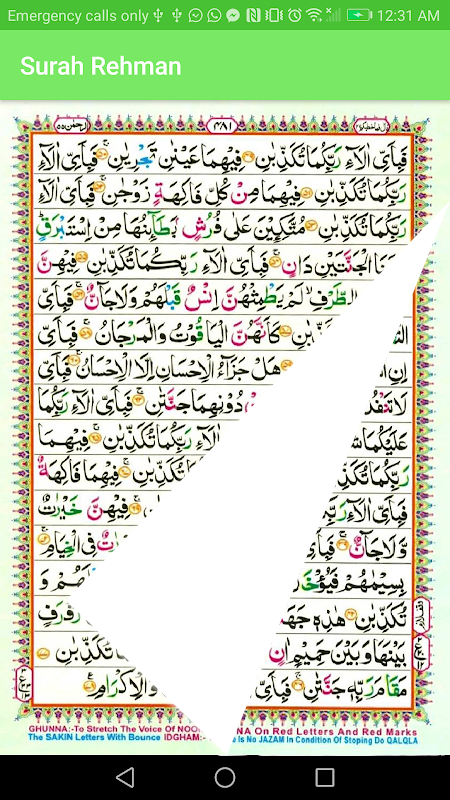 Emergency calls only 12:31 AM
Surah Rehman
الرحمٰن ٥٥ ٤٨١ قال فما خطبكم ٢٧
فَبِاَىِّ اٰلَآءِ رَبِّكُمَا تُكَذِّبٰنِ فِيْهِمَا عَيْنٰنِ تَجْرِيٰنِ فَبِاَىِّ اٰلَآءِ
رَبِّكُمَا تُكَذِّبٰنِ فِيْهِمَا مِنْ كُلِّ فَاكِهَةٍ زَوْجٰنِ فَبِاَىِّ اٰلَآءِ
رَبِّكُمَا تُكَذِّبٰنِ مُتَّكِـِٕيْنَ عَلٰى فُرُشٍ بَطَآىِٕنُهَا مِنْ اِسْتَبْرَقٍ
الْجَنَّتَيْنِ دَانٍ فَبِاَىِّ اٰلَآءِ رَبِّكُمَا تُكَذِّبٰنِ فِيْهِنَّ
الطَّرْفِ لَمْ يَطْمِثْهُنَّ اِنْسٌ قَبْلَهُمْ وَلَا جَآنٌّ فَبِاَىِّ
كَاَنَّهُنَّ الْيَاقُوْتُ وَالْمَرْجَانُ فَبِاَىِّ
اِنِ هَلْ جَزَآءُ الْاِحْسَانِ اِلَّا الْاِحْسَانُ فَبِاَىِّ
دُوْنِهِمَا جَنَّتٰنِ فَبِاَىِّ اٰلَآءِ رَبِّكُمَا
عَلَيْكُمَا اٰلَآءِ رَبِّكُمَا تُكَذِّبٰنِ فِيْهِمَا
رَبِّكُمَا رَبِّكُمَا تُكَذِّبٰنِ فِيْهِمَا فَاكِهَةٌ
فَبِاَىِّ اٰلَآءِ فِيْهِنَّ خَيْرٰتٌ
وَّلَا جَآنٌّ فِى الْخِيَامِ
بِسِيْمٰهُمْ وَ
تُكَذِّبٰنِ هٰذِهٖ رَفْرَفٍ
بَيْنَهَا وَبَيْنَ حَمِيْمٍ اٰنٍ تُكَذِّبٰنِ
مَقَامَ رَبِّهٖ جَنَّتٰنِ فَبِاَىِّ وَالْاِكْرَامِ
GHUNNA:-To Stretch The Voice Of NOO NA On Red Letters And Red Marks
The SAKIN Letters With Bounce IDGHAM:- Is No JAZAM In Condition Of Stoping Do QALQLA